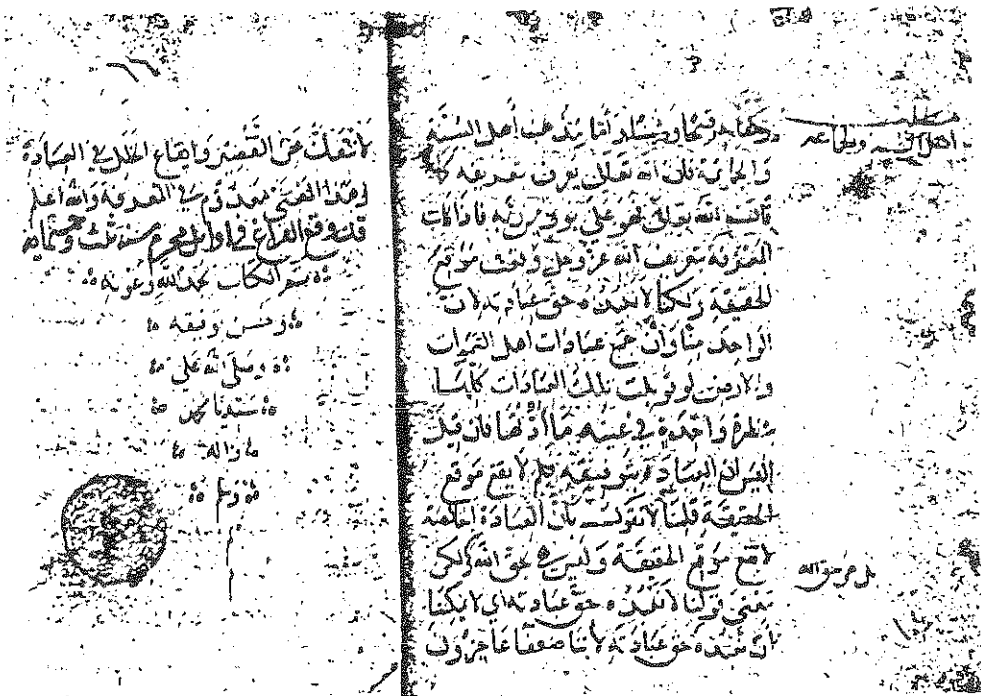 مطلب
اهل السنه والجماعه
أهل السنة
والجماعة فان الله تعالى يعرف بتعريفه كما
قال الله تعالى فهو على نور من ربه فاذا كانت
المعرفة بتعريف الله عز وجل وقعت موقع
الحقيقة ولكنا لا نعبده حق عبادته لان
الواحد منا وان جمع عبادات اهل السموات
والارض لو قوبلت تلك العبادات كلها
واحدة في عينيه ما فان قيل
اليس ان العبادة بتوفيقه فلم لا يقع موقع
الحقيقة قلنا لا نقول بان العبادة
لا تقع موقع الحقيقة وليس بحق الله ولكن
معنى قولنا لا نعبده حق عبادته اي لا يمكننا
ان نعبده حق عبادته لاننا ضعفا عاجزون
لا ننفك عن التقصير وايقاع الخلل في العبادة
وهذا المعنى معدوم في المعرفة والله اعلم
قد وقع الفراغ في اوايل محرم سنة ثلث
تم الكتاب بحمد الله وعونه
وحسن توفيقه
وصلى الله على
سيدنا محمد
واله
وسلم